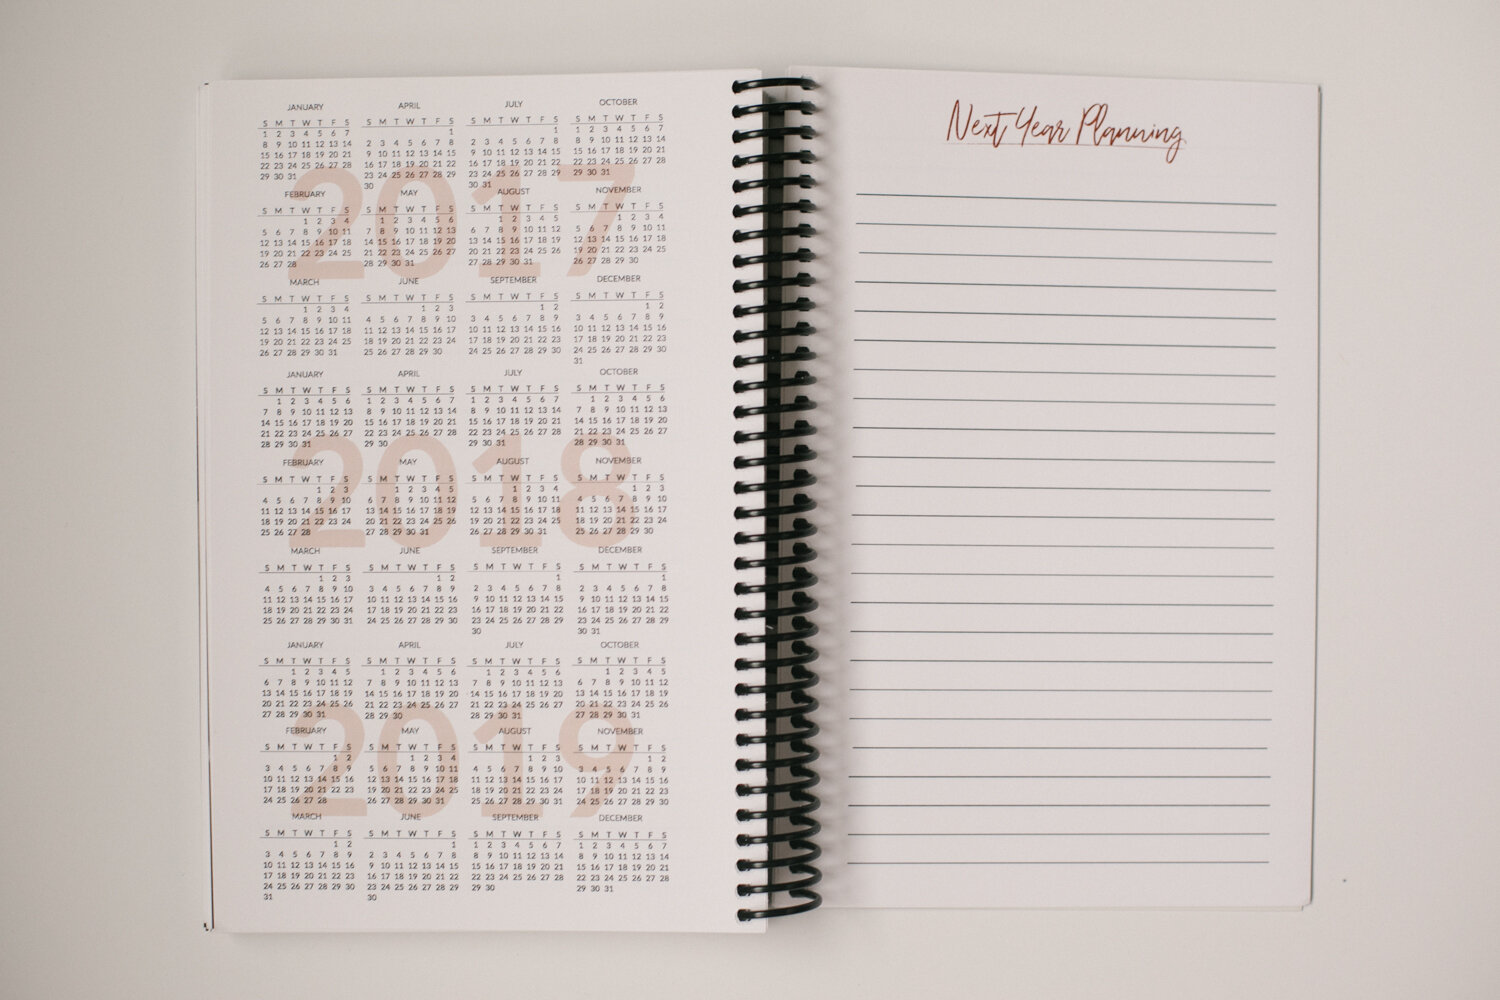 2017
JANUARY
S M T W T F S
1 2 3 4 5 6 7
8 9 10 11 12 13 14
15 16 17 18 19 20 21
22 23 24 25 26 27 28
29 30 31
FEBRUARY
S M T W T F S
1 2 3 4
5 6 7 8 9 10 11
12 13 14 15 16 17 18
19 20 21 22 23 24 25
26 27 28
MARCH
S M T W T F S
1 2 3 4
5 6 7 8 9 10 11
12 13 14 15 16 17 18
19 20 21 22 23 24 25
26 27 28 29 30 31
APRIL
S M T W T F S
1
2 3 4 5 6 7 8
9 10 11 12 13 14 15
16 17 18 19 20 21 22
23 24 25 26 27 28 29
30
MAY
S M T W T F S
1 2 3 4 5 6
7 8 9 10 11 12 13
14 15 16 17 18 19 20
21 22 23 24 25 26 27
28 29 30 31
JUNE
S M T W T F S
1 2 3
4 5 6 7 8 9 10
11 12 13 14 15 16 17
18 19 20 21 22 23 24
25 26 27 28 29 30
JULY
S M T W T F S
1
2 3 4 5 6 7 8
9 10 11 12 13 14 15
16 17 18 19 20 21 22
23 24 25 26 27 28 29
30 31
AUGUST
S M T W T F S
1 2 3 4 5
6 7 8 9 10 11 12
13 14 15 16 17 18 19
20 21 22 23 24 25 26
27 28 29 30 31
SEPTEMBER
S M T W T F S
1 2
3 4 5 6 7 8 9
10 11 12 13 14 15 16
17 18 19 20 21 22 23
24 25 26 27 28 29 30
OCTOBER
S M T W T F S
1 2 3 4 5 6 7
8 9 10 11 12 13 14
15 16 17 18 19 20 21
22 23 24 25 26 27 28
29 30 31
NOVEMBER
S M T W T F S
1 2 3 4
5 6 7 8 9 10 11
12 13 14 15 16 17 18
19 20 21 22 23 24 25
26 27 28 29 30
DECEMBER
S M T W T F S
1 2
3 4 5 6 7 8 9
10 11 12 13 14 15 16
17 18 19 20 21 22 23
24 25 26 27 28 29 30
31
2018
JANUARY
S M T W T F S
1 2 3 4 5 6
7 8 9 10 11 12 13
14 15 16 17 18 19 20
21 22 23 24 25 26 27
28 29 30 31
FEBRUARY
S M T W T F S
1 2 3
4 5 6 7 8 9 10
11 12 13 14 15 16 17
18 19 20 21 22 23 24
25 26 27 28
MARCH
S M T W T F S
1 2 3
4 5 6 7 8 9 10
11 12 13 14 15 16 17
18 19 20 21 22 23 24
25 26 27 28 29 30 31
APRIL
S M T W T F S
1 2 3 4 5 6 7
8 9 10 11 12 13 14
15 16 17 18 19 20 21
22 23 24 25 26 27 28
29 30
MAY
S M T W T F S
1 2 3 4 5
6 7 8 9 10 11 12
13 14 15 16 17 18 19
20 21 22 23 24 25 26
27 28 29 30 31
JUNE
S M T W T F S
1 2
3 4 5 6 7 8 9
10 11 12 13 14 15 16
17 18 19 20 21 22 23
24 25 26 27 28 29 30
JULY
S M T W T F S
1 2 3 4 5 6 7
8 9 10 11 12 13 14
15 16 17 18 19 20 21
22 23 24 25 26 27 28
29 30 31
AUGUST
S M T W T F S
1 2 3 4
5 6 7 8 9 10 11
12 13 14 15 16 17 18
19 20 21 22 23 24 25
26 27 28 29 30 31
SEPTEMBER
S M T W T F S
1
2 3 4 5 6 7 8
9 10 11 12 13 14 15
16 17 18 19 20 21 22
23 24 25 26 27 28 29
30
OCTOBER
S M T W T F S
1 2 3 4 5 6
7 8 9 10 11 12 13
14 15 16 17 18 19 20
21 22 23 24 25 26 27
28 29 30 31
NOVEMBER
S M T W T F S
1 2 3
4 5 6 7 8 9 10
11 12 13 14 15 16 17
18 19 20 21 22 23 24
25 26 27 28 29 30
DECEMBER
S M T W T F S
1
2 3 4 5 6 7 8
9 10 11 12 13 14 15
16 17 18 19 20 21 22
23 24 25 26 27 28 29
30 31
2019
JANUARY
S M T W T F S
1 2 3 4 5
6 7 8 9 10 11 12
13 14 15 16 17 18 19
20 21 22 23 24 25 26
27 28 29 30 31
FEBRUARY
S M T W T F S
1 2
3 4 5 6 7 8 9
10 11 12 13 14 15 16
17 18 19 20 21 22 23
24 25 26 27 28
MARCH
S M T W T F S
1 2
3 4 5 6 7 8 9
10 11 12 13 14 15 16
17 18 19 20 21 22 23
24 25 26 27 28 29 30
31
APRIL
S M T W T F S
1 2 3 4 5 6
7 8 9 10 11 12 13
14 15 16 17 18 19 20
21 22 23 24 25 26 27
28 29 30
MAY
S M T W T F S
1 2 3 4
5 6 7 8 9 10 11
12 13 14 15 16 17 18
19 20 21 22 23 24 25
26 27 28 29 30 31
JUNE
S M T W T F S
1
2 3 4 5 6 7 8
9 10 11 12 13 14 15
16 17 18 19 20 21 22
23 24 25 26 27 28 29
30
JULY
S M T W T F S
1 2 3 4 5 6
7 8 9 10 11 12 13
14 15 16 17 18 19 20
21 22 23 24 25 26 27
28 29 30 31
AUGUST
S M T W T F S
1 2 3
4 5 6 7 8 9 10
11 12 13 14 15 16 17
18 19 20 21 22 23 24
25 26 27 28 29 30 31
SEPTEMBER
S M T W T F S
1 2 3 4 5 6 7
8 9 10 11 12 13 14
15 16 17 18 19 20 21
22 23 24 25 26 27 28
29 30
OCTOBER
S M T W T F S
1 2 3 4 5
6 7 8 9 10 11 12
13 14 15 16 17 18 19
20 21 22 23 24 25 26
27 28 29 30 31
NOVEMBER
S M T W T F S
1 2
3 4 5 6 7 8 9
10 11 12 13 14 15 16
17 18 19 20 21 22 23
24 25 26 27 28 29 30
DECEMBER
S M T W T F S
1 2 3 4 5 6 7
8 9 10 11 12 13 14
15 16 17 18 19 20 21
22 23 24 25 26 27 28
29 30 31
Next Year Planning